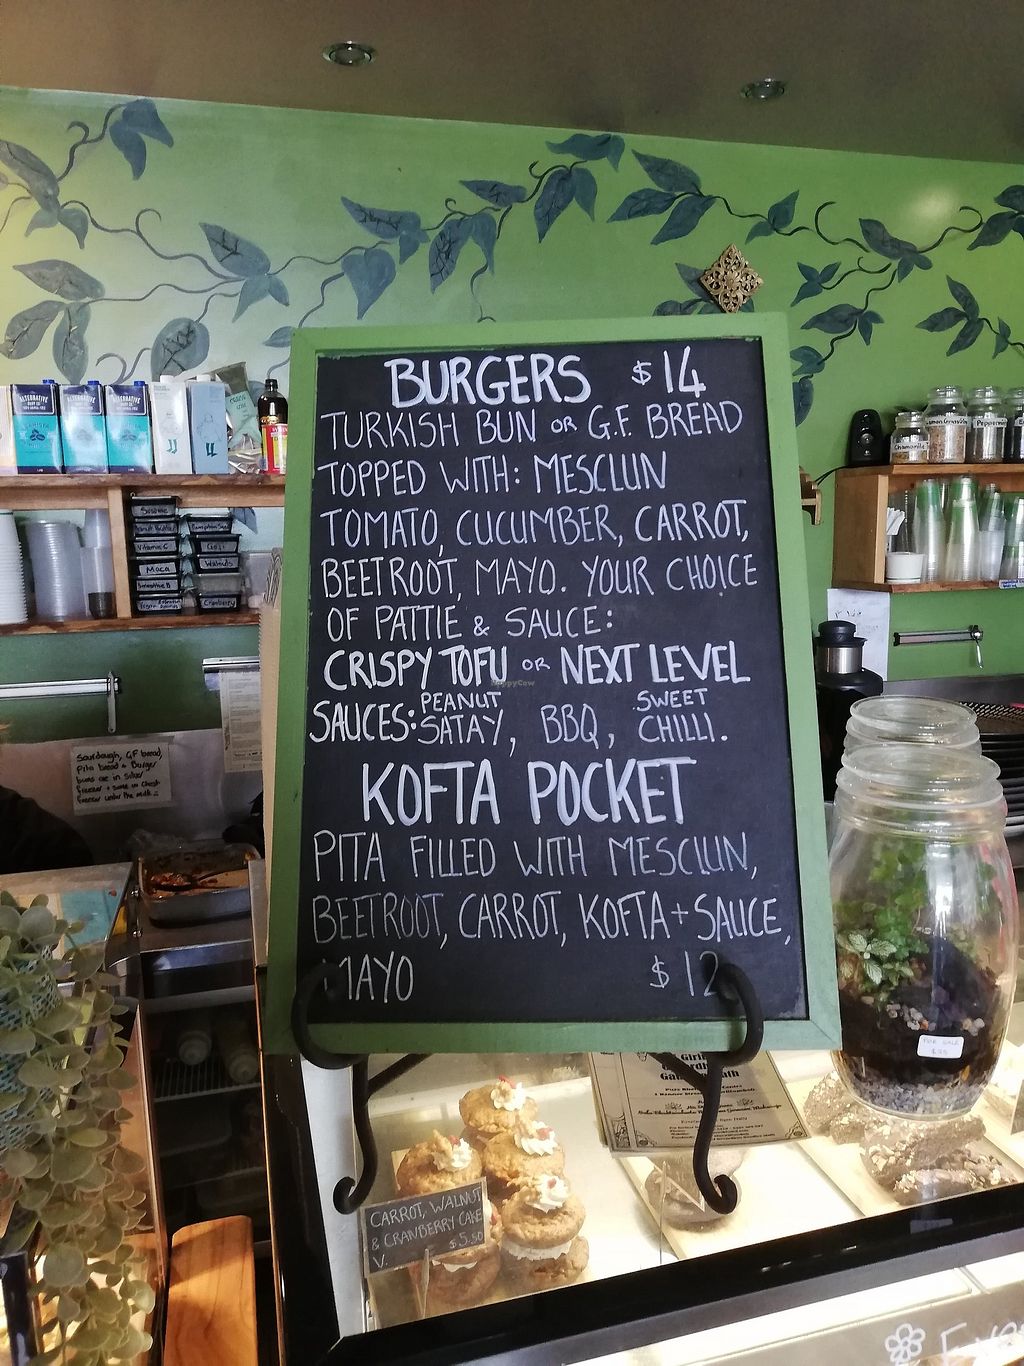 BURGERS $14
TURKISH BUN OR G.F. BREAD
TOPPED WITH: MESCLUN
TOMATO, CUCUMBER, CARROT,
BEETROOT, MAYO. YOUR CHOICE
OF PATTIE & SAUCE:
CRISPY TOFU OR NEXT LEVEL
SAUCES: PEANUT SATAY, BBQ, SWEET CHILLI.
KOFTA POCKET
PITA FILLED WITH MESCLUN,
BEETROOT, CARROT, KOFTA + SAUCE,
MAYO $12
HappyCow
ALTERNATIVE
Sesame
Vitamin C
Goji
Walnuts
Maca
Cranberry
Chamomile
Lemongrass
Peppermint
Sourdough, GF bread,
Pita bread & Burger
buns are in silver
freezer + some in chest
freezer under the milk
CARROT, WALNUT
& CRANBERRY CAKE
V. $5.50
FOR SALE